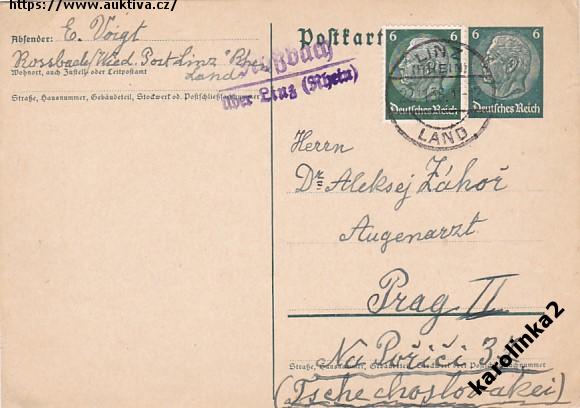 https://www.auktiva.cz/
Absender: E. Voigt
Rossbach/Wied. Post Linz Rhein
Wohnort, auch Zustell- oder Leitpostamt
Land
Straße, Hausnummer, Gebäudeteil, Stockwerk od. Postschließfachnummer
Roßbach
über Linz (Rhein)
Postkarte
6 6
Deutsches Reich
6
Deutsches Reich
LINZ
(RHEIN)
LAND
Herrn
Dr Aleksej Záhoř
Augenarzt
Prag II
Na Poříčí 3
Straße, Hausnummer, Gebäudeteil, Stockwerk oder Postschließfachnummer
(Tschechoslovakei)
karolinka2